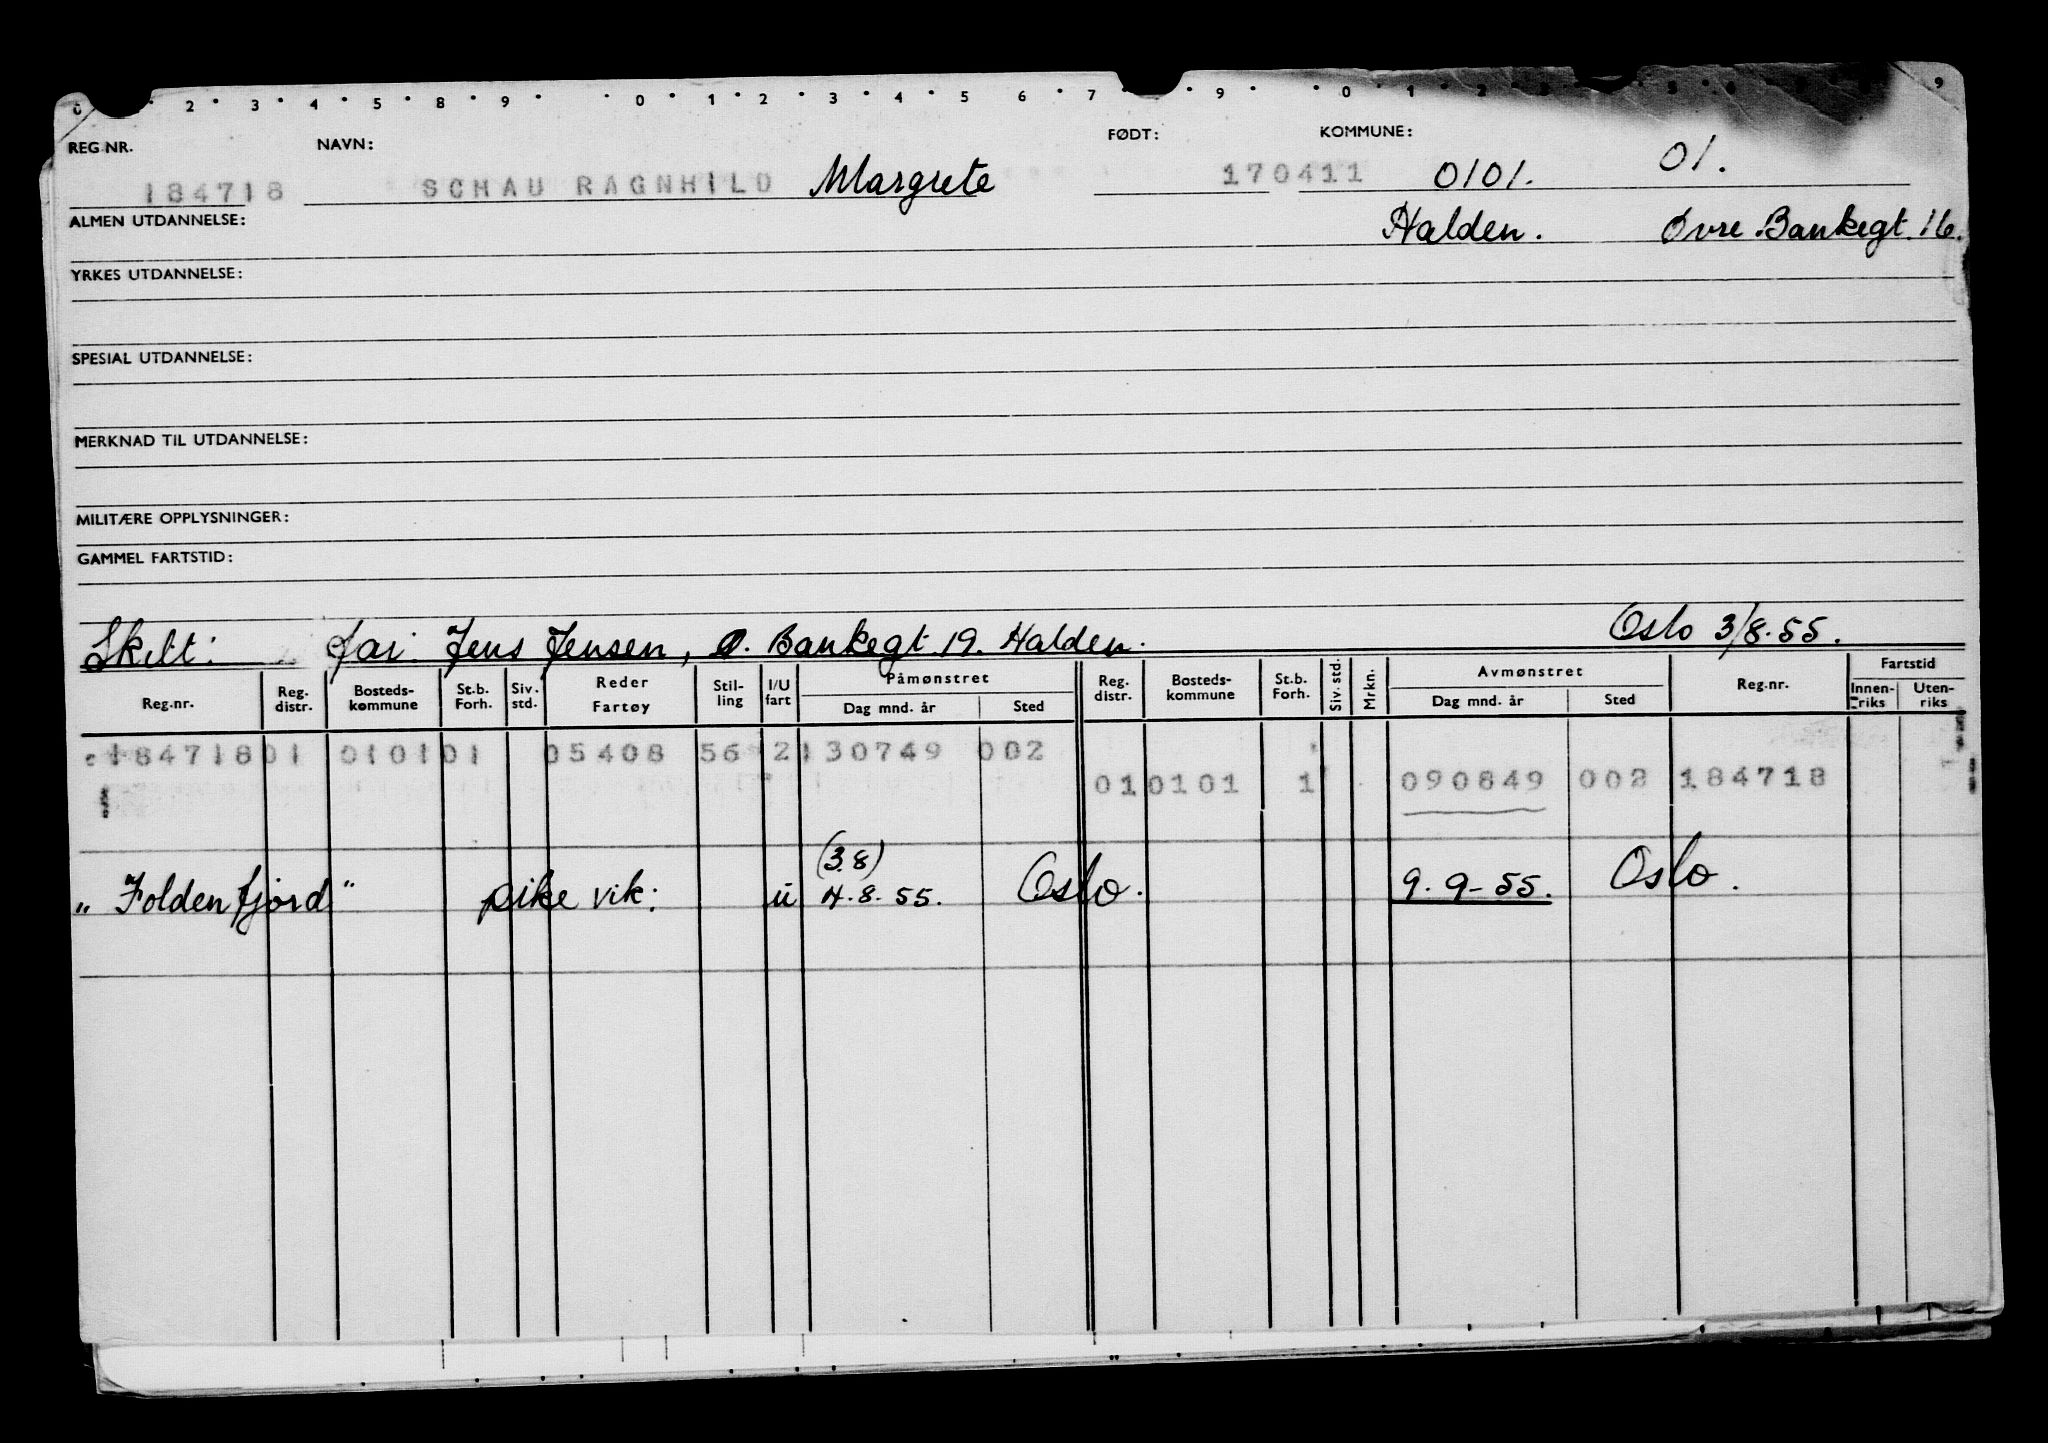 0 2 3 4 5 8 9 0 1 2 3 4 5 6 7 9 0 1 2 9
REG NR. NAVN: FØDT: KOMMUNE:
184718 SCHAU RAGNHILD Margrete 170411 0101. 01.
ALMEN UTDANNELSE: Halden. Øvre Bankegt. 16.
YRKES UTDANNELSE:
SPESIAL UTDANNELSE:
MERKNAD TIL UTDANNELSE:
MILITÆRE OPPLYSNINGER:
GAMMEL FARTSTID:
Skilt: far: Jens Jensen, Ø. Bankegt. 19. Halden. Oslo 3/8.55.
Reg.nr. Reg. distr. Bosteds-kommune St.b. Forh. Siv. std. Reder Fartøy Stil-ling I/U fart Påmønstret Dag mnd. år Sted Reg. distr. Bosteds-kommune St.b. Forh. Siv. std. Mrkn. Avmønstret Dag mnd. år Sted Reg.nr. Fartstid Innen-riks Uten-riks
184718 01 0101 01 05408 56 2 130749 002
01 0101 1 090849 002 184718
(3.8)
"Foldenfjord" pike vik: u 4.8.55. Oslo. 9.9-55. Oslo.